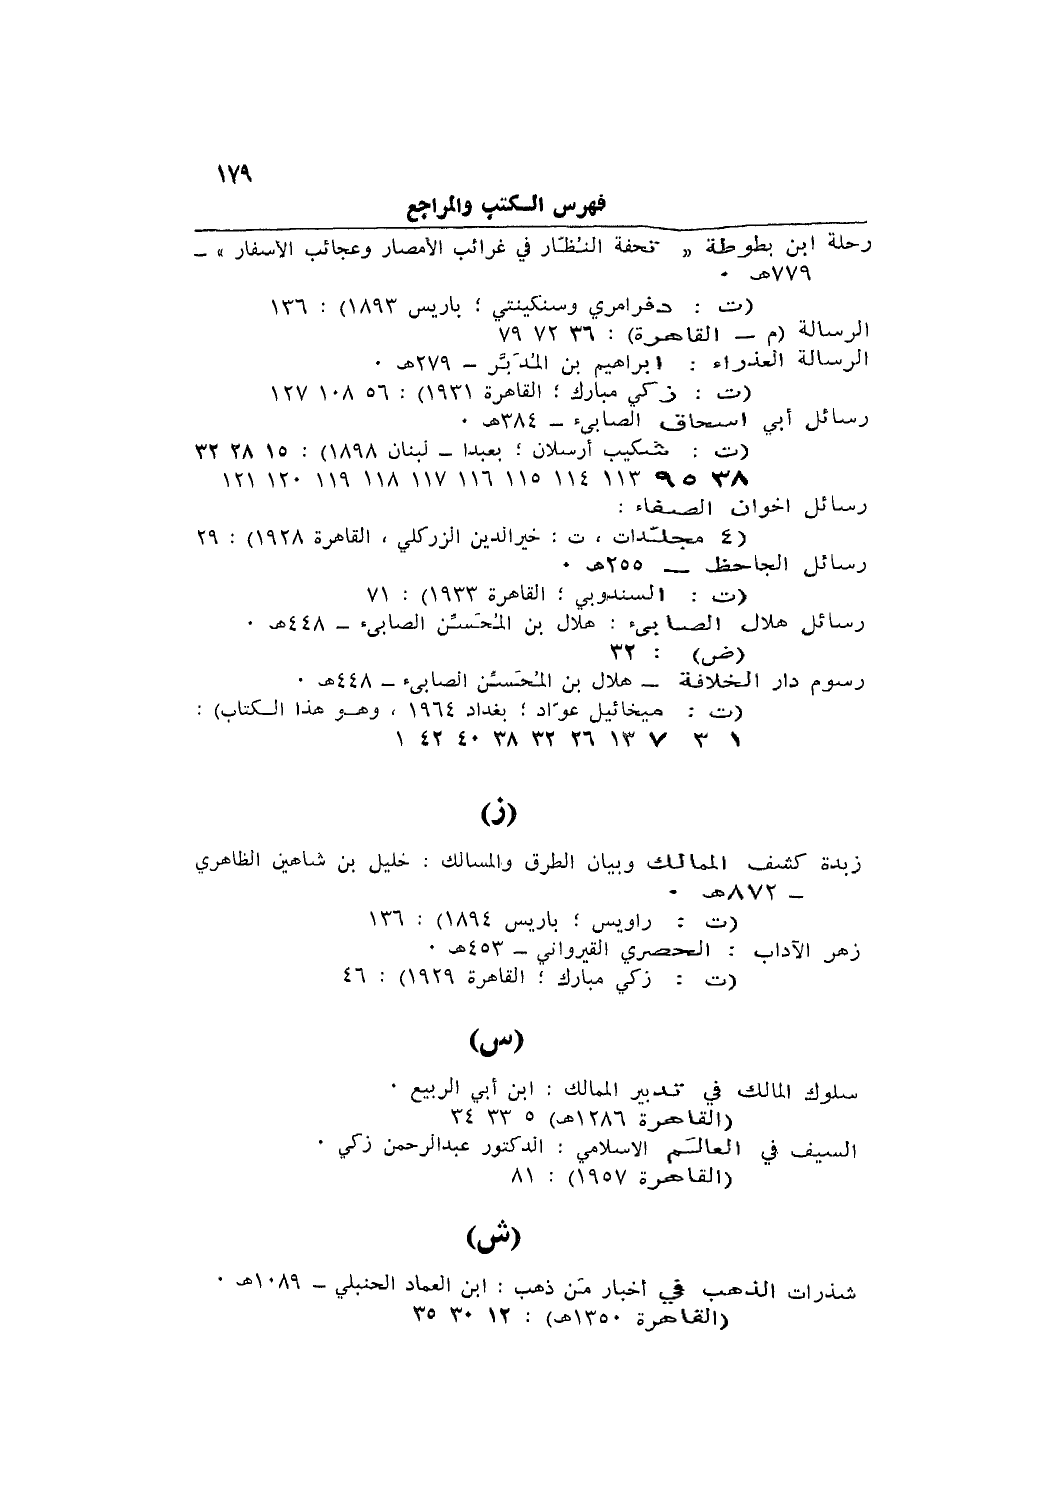 ١٧٩
فهرس الكتب والمراجع
رحلة ابن بطوطة « تحفة النظّار في غرائب الأمصار وعجائب الأسفار » –
٧٧٩هـ ٠
(ت : دفرامري وسنكينتي ؛ باريس ١٨٩٣) : ١٣٦
الرسالة (م – القاهرة) : ٣٦ ٧٢ ٧٩
الرسالة العذراء : ابراهيم بن المُدَبَّر – ٢٧٩هـ ٠
(ت : زكي مبارك ؛ القاهرة ١٩٣١) : ٥٦ ١٠٨ ١٢٧
رسائل أبي اسحاق الصابىء – ٣٨٤هـ ٠
(ت : شكيب أرسلان ؛ بعبدا – لبنان ١٨٩٨) : ١٥ ٢٨ ٣٢
٣٨ ٩٥ ١١٣ ١١٤ ١١٥ ١١٦ ١١٧ ١١٨ ١١٩ ١٢٠ ١٢١
رسائل اخوان الصفاء :
(٤ مجلّدات ، ت : خيرالدين الزركلي ، القاهرة ١٩٢٨) : ٢٩
رسائل الجاحظ – ٢٥٥هـ ٠
(ت : السندوبي ؛ القاهرة ١٩٣٣) : ٧١
رسائل هلال الصابىء : هلال بن المُحَسِّن الصابىء – ٤٤٨هـ ٠
(ض) : ٣٢
رسوم دار الخلافة – هلال بن المُحَسِّن الصابىء – ٤٤٨هـ ٠
(ت : ميخائيل عوّاد ؛ بغداد ١٩٦٤ ، وهو هذا الكتاب) :
١ ٣ ٧ ١٣ ٢٦ ٣٢ ٣٨ ٤٠ ٤٢ ١
(ز)
زبدة كشف الممالك وبيان الطرق والمسالك : خليل بن شاهين الظاهري
– ٨٧٢هـ ٠
(ت : راويس ؛ باريس ١٨٩٤) : ١٣٦
زهر الآداب : الحصري القيرواني – ٤٥٣هـ ٠
(ت : زكي مبارك ؛ القاهرة ١٩٢٩) : ٤٦
(س)
سلوك المالك في تدبير الممالك : ابن أبي الربيع ٠
(القاهرة ١٢٨٦هـ) ٥ ٣٣ ٣٤
السيف في العالَم الاسلامي : الدكتور عبدالرحمن زكي ٠
(القاهرة ١٩٥٧) : ٨١
(ش)
شذرات الذهب في أخبار مَن ذهب : ابن العماد الحنبلي – ١٠٨٩هـ ٠
(القاهرة ١٣٥٠هـ) : ١٢ ٣٠ ٣٥